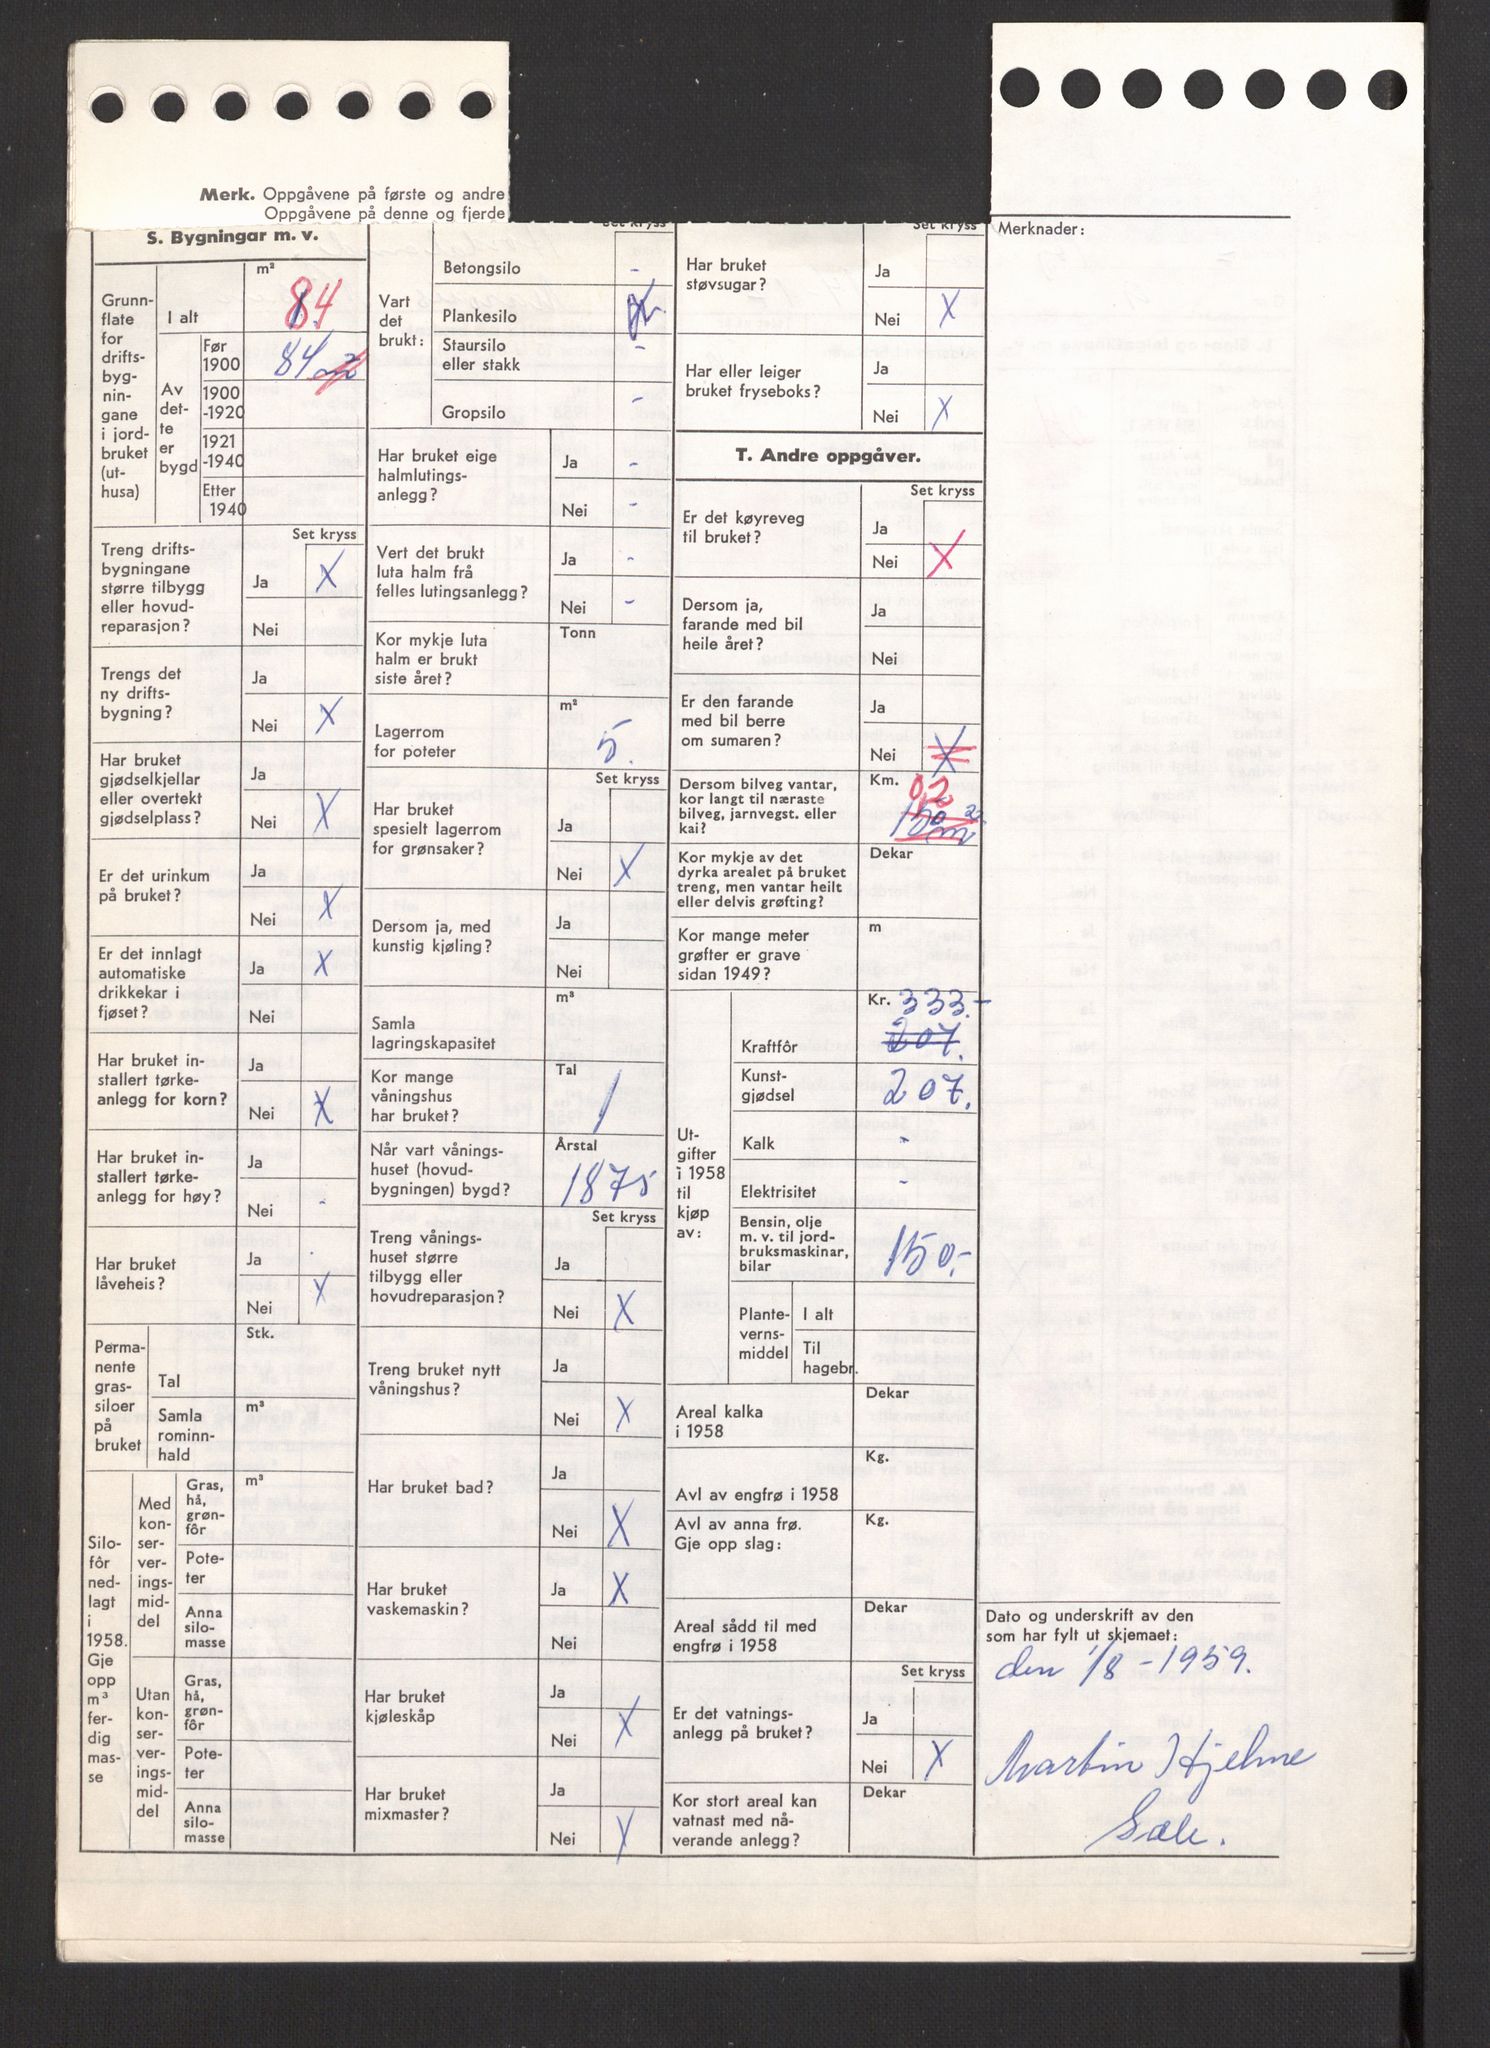 Merk. Oppgåvene på første og andre
Oppgåvene på denne og fjerde
S. Bygningar m. v.
Grunn-
flate
for
drifts-
byg-
nin-
gane
i jord-
bruket
(ut-
husa)
m²
I alt
84
Av
det-
te
er
bygd
Før
1900
84 m²
1900
-1920
1921
-1940
Etter
1940
Set kryss
Treng drifts-
bygningane
større tilbygg
eller hovud-
reparasjon?
Ja X
Nei
Trengs det
ny drifts-
bygning?
Ja
Nei X
Har bruket
gjødselkjellar
eller overtekt
gjødselplass?
Ja
Nei X
Er det urinkum
på bruket?
Ja
Nei X
Er det innlagt
automatiske
drikkekar i
fjøset?
Ja X
Nei
Har bruket in-
stallert tørke-
anlegg for korn?
Ja
Nei X
Har bruket in-
stallert tørke-
anlegg for høy?
Ja
Nei -
Har bruket
låveheis?
Ja
Nei X
Perma-
nente
gras-
siloer
på
bruket
Stk.
Tal
Samla
rominn-
hald
m³
Silo-
fôr
ned-
lagt
i
1958.
Gje
opp
m³
fer-
dig
mas-
se
Med
kon-
ser-
ver-
ings-
mid-
del
Gras,
hå,
grøn-
fôr
m³
Pote-
ter
Anna
silo-
masse
Utan
kon-
ser-
ver-
ings-
mid-
del
Gras,
hå,
grøn-
fôr
Pote-
ter
Anna
silo-
masse
Set kryss
Vart
det
brukt:
Betongsilo -
Plankesilo
Staursilo
eller stakk -
Gropsilo -
Har bruket eige
halmlutings-
anlegg?
Ja -
Nei -
Vert det brukt
luta halm frå
felles lutingsanlegg?
Ja -
Nei -
Kor mykje luta
halm er brukt
siste året?
Tonn
Lagerrom
for poteter
m²
5.
Set kryss
Har bruket
spesielt lagerrom
for grønsaker?
Ja
Nei X
Dersom ja, med
kunstig kjøling?
Ja
Nei
Samla
lagringskapasitet
m³
Kor mange
våningshus
har bruket?
Tal
1
Når vart vånings-
huset (hovud-
bygningen) bygd?
Årstal
1875
Set kryss
Treng vånings-
huset større
tilbygg eller
hovudreparasjon?
Ja
Nei X
Treng bruket nytt
våningshus?
Ja
Nei X
Har bruket bad?
Ja
Nei X
Har bruket
vaskemaskin?
Ja X
Nei
Har bruket
kjøleskåp
Ja
Nei X
Har bruket
mixmaster?
Ja
Nei X
Set kryss
Har bruket
støvsugar?
Ja
Nei X
Har eller leiger
bruket fryseboks?
Ja
Nei X
T. Andre oppgåver.
Set kryss
Er det køyreveg
til bruket?
Ja
Nei X
Dersom ja,
farande med bil
heile året?
Ja
Nei
Er den farande
med bil berre
om sumaren?
Ja
Nei X
Dersom bilveg vantar,
kor langt til næraste
bilveg, jarnvegst. eller
kai?
Km.
0,2
150 m
Kor mykje av det
dyrka arealet på bruket
treng, men vantar heilt
eller delvis grøfting?
Dekar
Kor mange meter
grøfter er grave
sidan 1949?
m
Ut-
gifter
i 1958
til
kjøp
av:
Kr.
333.-
Kraftfôr
207.
Kunst-
gjødsel
207.
Kalk -
Elektrisitet -
Bensin, olje
m. v. til jord-
bruksmaskinar,
bilar
150.-
Plante-
verns-
middel
I alt
Til
hagebr.
Areal kalka
i 1958
Dekar
Avl av engfrø i 1958
Kg.
Avl av anna frø.
Gje opp slag:
Kg.
Areal sådd til med
engfrø i 1958
Dekar
Set kryss
Er det vatnings-
anlegg på bruket?
Ja
Nei X
Kor stort areal kan
vatnast med nå-
verande anlegg?
Dekar
Merknader:
Dato og underskrift av den
som har fylt ut skjemaet:
den 1/8 - 1959.
Martin Hjelme
Sæle.